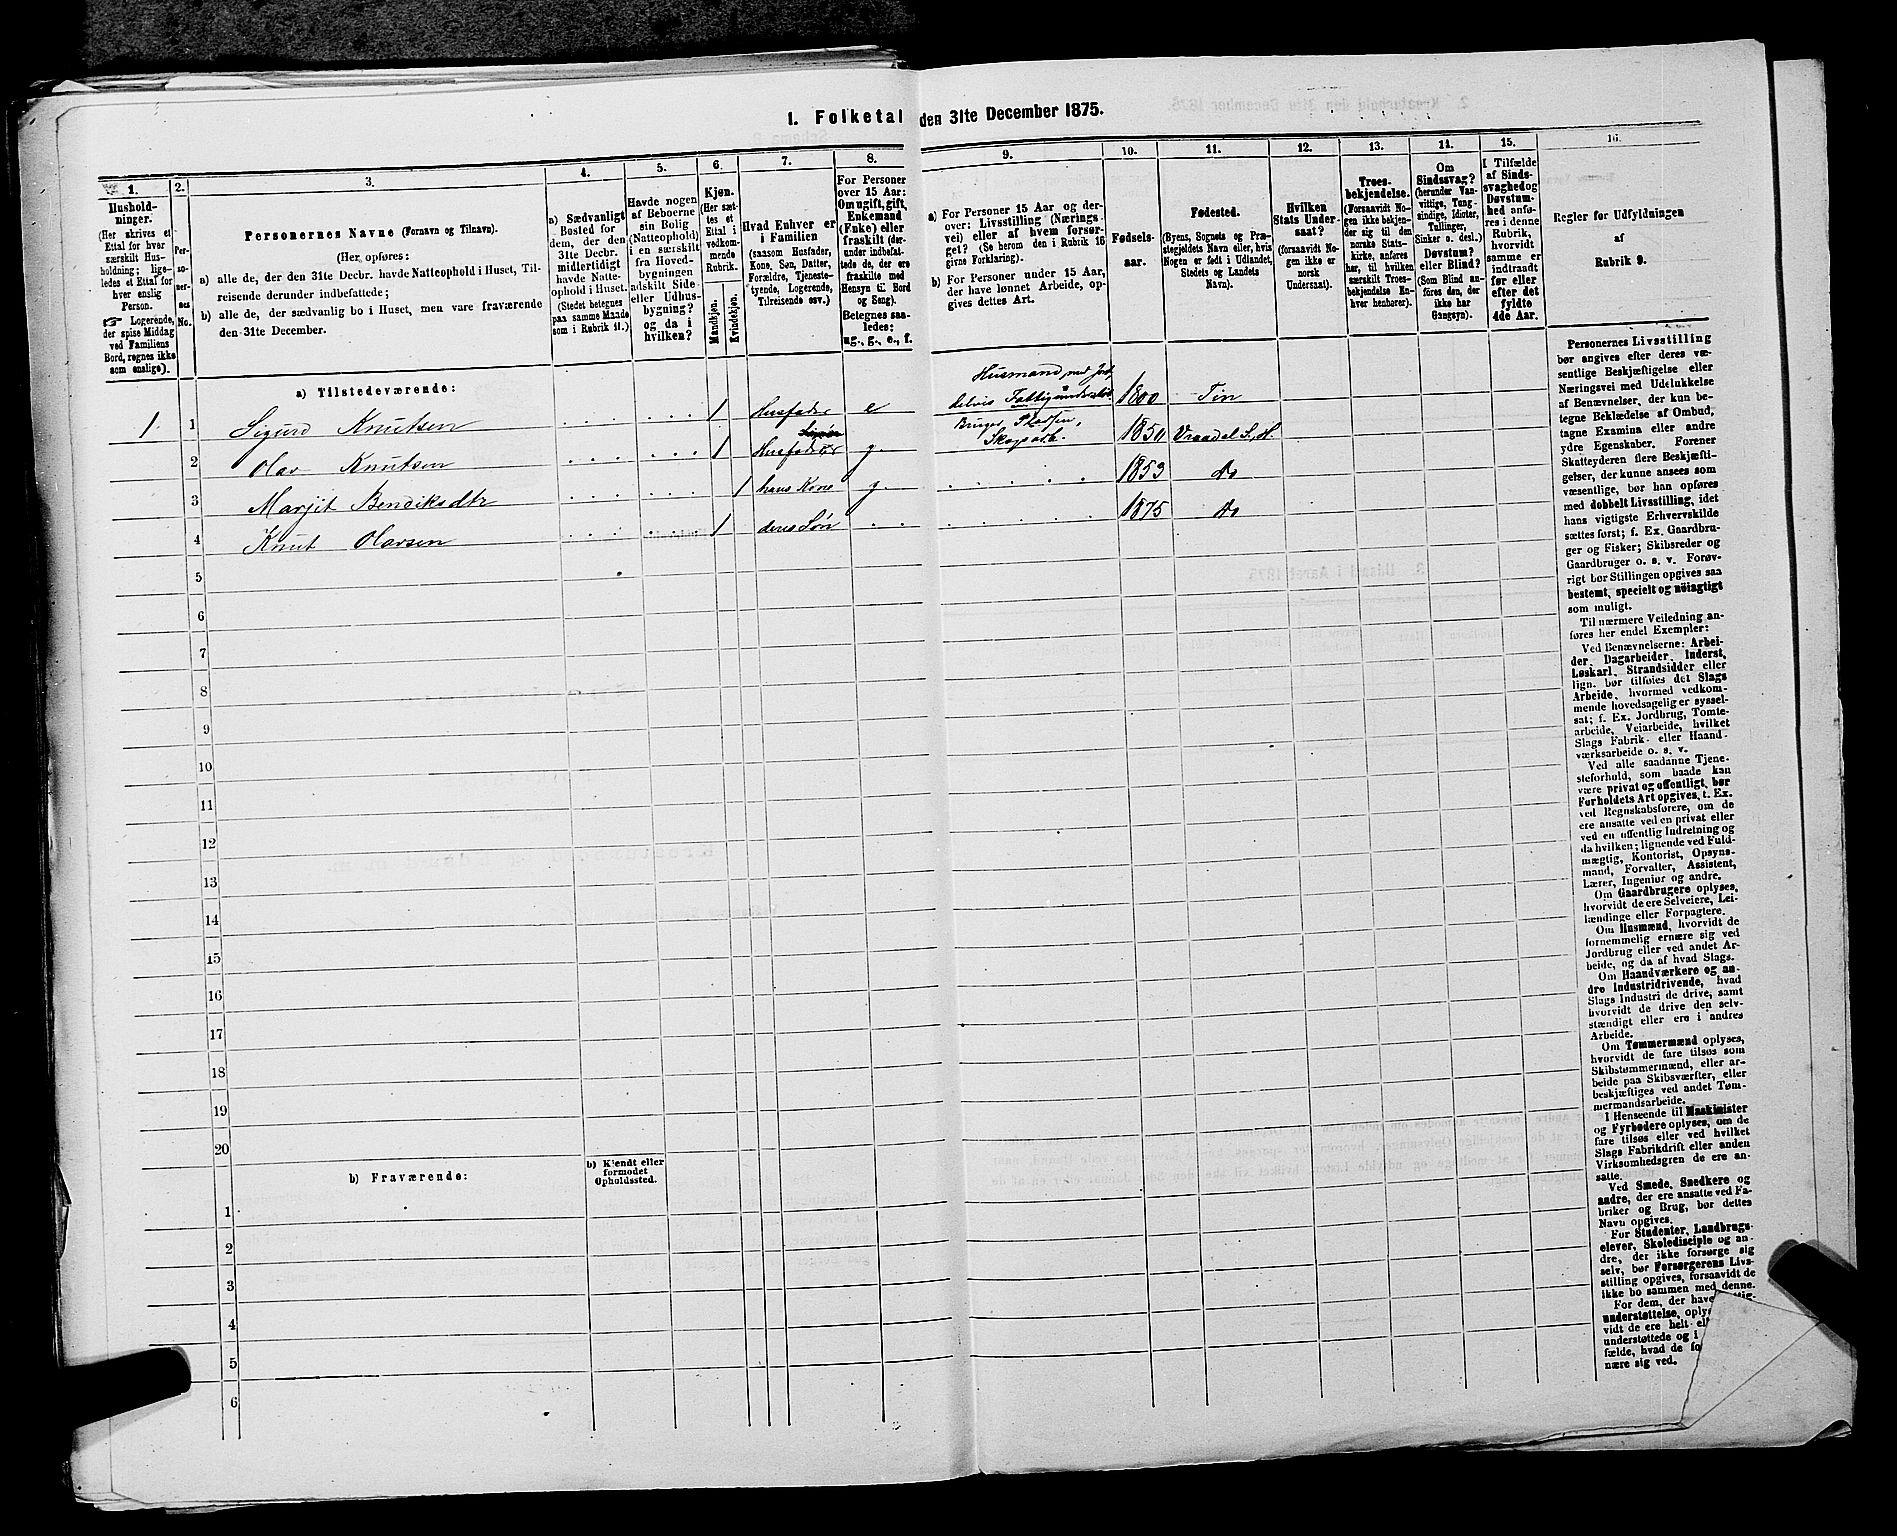 1. Folketal den 31te December 1875.
1.
Hushold-
ninger.
(Her skrives et
Ettal for hver
særskilt Hus-
holdning; lige-
ledes et Ettal for
hver enslig
Person.
☞ Logerende,
der spise Middag
ved Familiens
Bord, regnes ikke
som enslige).
2.
Per-
so-
ner-
nes
No.
3.
Personernes Navne (Fornavn og Tilnavn).
(Her opføres:
a) alle de, der den 31te Decbr. havde Natteophold i Huset, Til-
reisende derunder indbefattede;
b) alle de, der sædvanlig bo i Huset, men vare fraværende
den 31te December.
4.
a) Sædvanligt
Bosted for
dem, der den
31te Decbr.
midlertidigt
havde Natte-
ophold i Huset.
(Stedet betegnes
paa samme Maade
som i Rubrik 11.)
5.
Havde nogen
af Beboerne
sin Bolig
(Natteophold)
i en særskilt
fra Hoved-
bygningen
adskilt Side-
eller Udhus-
bygning?
og da i
hvilken?
6.
Kjøn.
(Her sæt-
tes et
Ettal i
vedkom-
mende
Rubrik.
Mandkjøn.
Kvindekjøn.
7.
Hvad Enhver er
i Familien
(saasom Husfader,
Kone, Søn, Datter,
Forældre, Tjeneste-
tyende, Logerende,
Tilreisende osv.)
8.
For Personer
over 15 Aar:
Om ugift, gift,
Enkemand
(Enke) eller
fraskilt (der-
under indbefat-
tede de, der ere
fraskilte med
Hensyn til Bord
og Seng).
Betegnes saa-
ledes:
ug., g., e., f.
9.
a) For Personer 15 Aar og der-
over: Livsstilling (Nærings-
vei) eller af hvem forsør-
get? (Se herom den i Rubrik 16
givne Forklaring).
b) For Personer under 15 Aar,
der have lønnet Arbeide, op-
gives dettes Art.
10.
Fødsels-
aar.
11.
Fødested.
(Byens, Sognets og Præ-
stegjeldets Navn eller, hvis
Nogen er født i Udlandet,
Stedets og Landets
Navn).
12.
Hvilken
Stats Under-
saat?
(forsaavidt No-
gen ikke er
norsk
Undersaat).
13.
Troes-
bekjendelse.
(Forsaavidt No-
gen ikke bekjen-
der sig til den
norske Stats-
kirke, anføres
her, til hvilken
særskilt Troes-
bekjendelse En-
hver henhører).
14.
Om
Sindssvag?
(herunder Van-
vittige, Tung-
sindige, Idioter,
Tullinger,
Sinker o. desl.)
Døvstum?
eller Blind?
(Som Blind an-
føres den, der
ikke har
Gangsyn).
15.
I Tilfælde
af Sinds-
svaghed og
Døvstum-
hed anfø-
res i denne
Rubrik,
hvorvidt
samme er
indtraadt
før eller
efter det
fyldte
4de Aar.
16.
Regler for Udfyldningen
af
Rubrik 9.
a) Tilstedeværende:
1 1 Sigurd Knutsen 1 Husfader e Husmand med Jord, delvis Fattigunderst. 1800 Tin
2 Olav Knutsen 1 Husfader g. Bruger Pladsen, Skogarb. 1850 Vraadal S., H.
3 Margit Bendiksdtr 1 hans Kone g. 1853 Do
4 Knut Olavsen 1 deres Søn 1875 Do
5
6
7
8
9
10
11
12
13
14
15
16
17
18
19
20
b) Fraværende:
b) Kjendt eller
formodet
Opholdssted.
1
2
3
4
5
6
Personernes Livsstilling
bør angives efter deres væ-
sentlige Beskjæftigelse eller
Næringsvei med Udelukkelse
af Benævnelser, der kun be-
tegne Beklædelse af Ombud,
tagne Examina eller andre
ydre Egenskaber. Forener
Skatteyderen flere Beskjæfti-
gelser, der kunne ansees som
væsentlige, bør han opføres
med dobbelt Livsstilling, idet
hans vigtigste Erhvervskilde
sættes først; f. Ex. Gaardbru-
ger og Fisker; Skibsreder og
Gaardbruger o. s. v. Forøv-
rigt bør Stillingen opgives saa
bestemt, specielt og nøiagtigt
som muligt.
Til nærmere Veiledning an-
føres her endel Exempler:
Ved Benævnelserne: Arbei-
der, Dagarbeider, Inderst,
Løskarl, Strandsidder eller
lign. bør tilføies det Slags
Arbeide, hvormed vedkom-
mende hovedsagelig er syssel-
sat; f. Ex. Jordbrug, Tomte-
arbeide, Veiarbeide, hvilket
Slags Fabrik- eller Haand-
værksarbeide o. s. v.
Ved alle saadanne Tjene-
steforhold, som baade kan
være privat og offentligt, bør
Forholdets Art opgives, t. Ex.
ved Regnskabsførere, om de
ere ansatte ved en privat eller
ved en offentlig Indretning og
da hvilken; lignende ved Fuld-
mægtig, Kontorist, Opsyns-
mand, Forvalter, Assistent,
Lærer, Ingeniør og andre.
Om Gaardbrugere oplyses,
hvorvidt de ere Selveiere, Lei-
lændinge eller Forpagtere.
Om Husmænd, hvorvidt de
fornemmelig ernære sig ved
Jordbrug eller ved andet Ar-
beide, og da af hvad Slags.
Om Haandværkere og an-
dre Industridrivende, hvad
Slags Industri de drive, samt
hvorvidt de drive den selv-
stændigt eller ere i andres
Arbeide.
Om Tømmermænd oplyses,
hvorvidt de fare tilsøs som
Skibstømmermænd, eller ar-
beide paa Skibsværfter, eller
beskjæftiges ved andet Tøm-
mermandsarbeide.
I Henseende til Maskinister
og Fyrbødere oplyses, om de
fare tilsøs eller ved hvilket
Slags Fabrikdrift eller anden
Virksomhedsgren de ere an-
satte.
Ved Smede, Snedkere og
andre, der ere ansatte ved Fa-
briker og Brug, bør dettes
Navn opgives.
For Studenter, Landbrugs-
elever, Skoledisciple og an-
dre, der ikke forsørge sig
selv, bør Forsørgerens Livs-
stilling opgives, forsaavidt de
ikke bo sammen med denne.
For dem, der have
understøttelse, oply
vidt de ere helt el
understøttede og i
fælde, hvad de fo
nære sig ved.